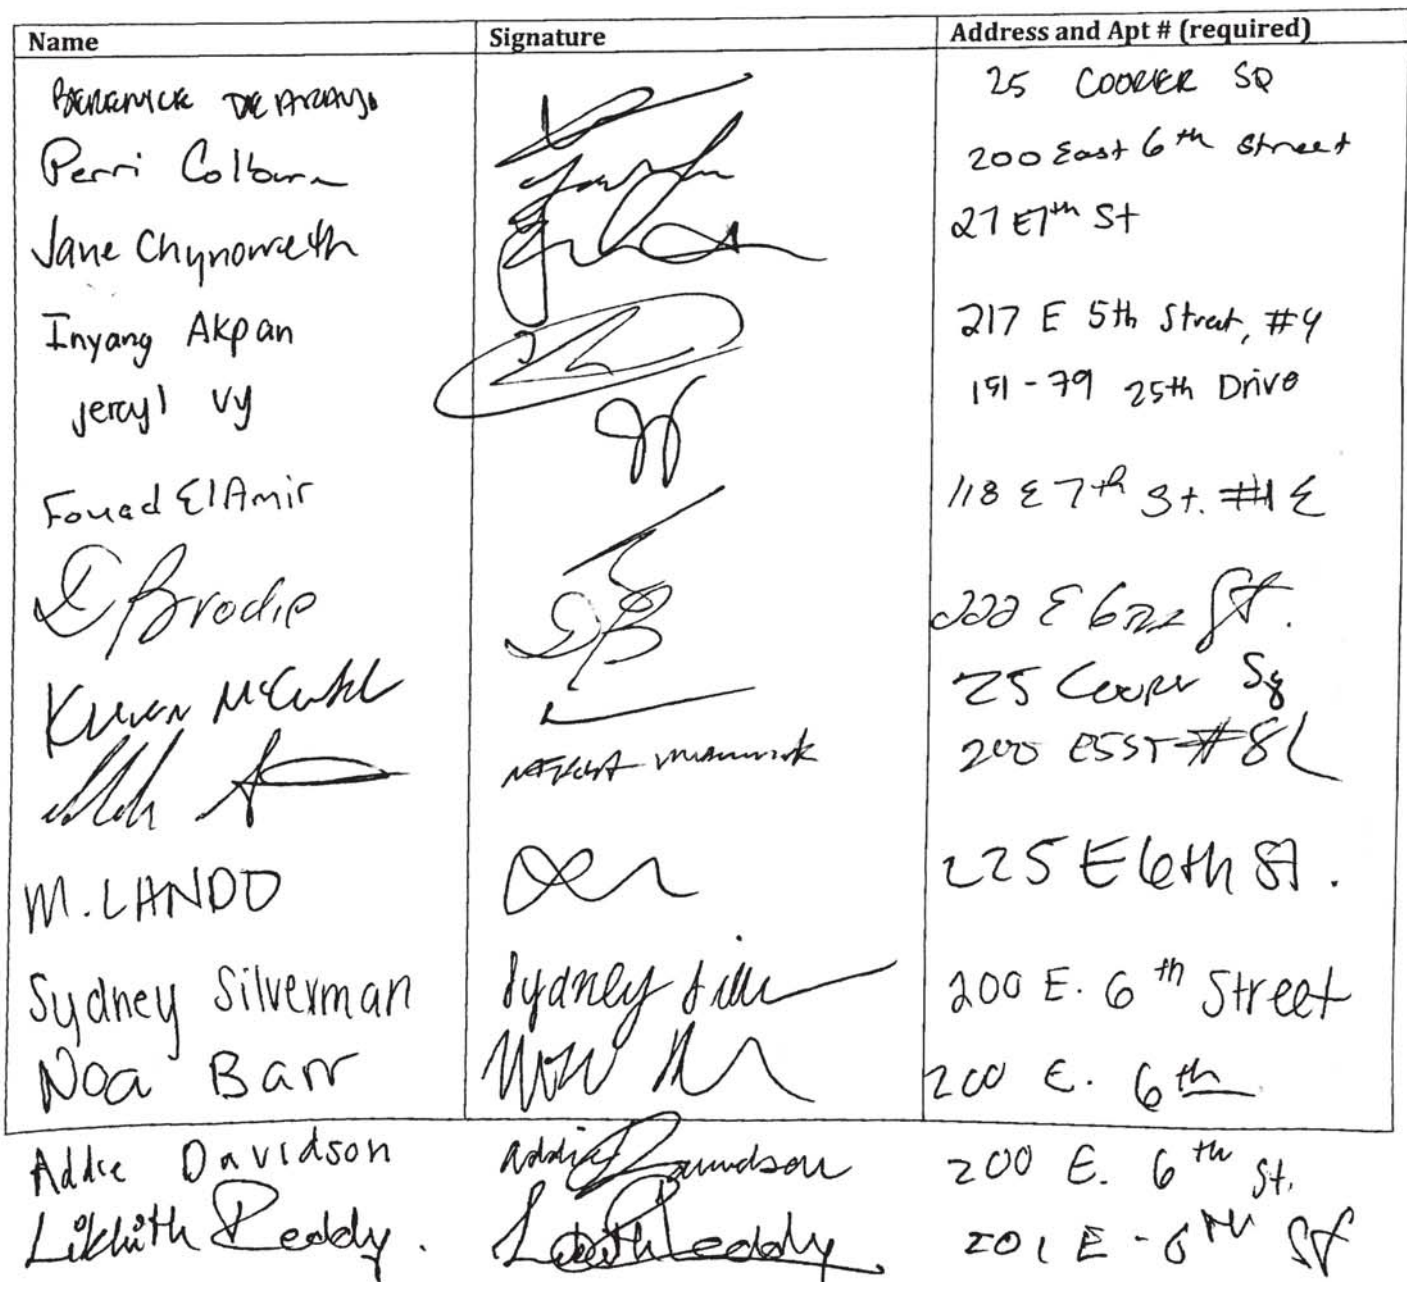 Name Signature Address and Apt # (required)
BERENICE DE ARAUJO 25 COOPER SQ
Perri Colburn 200 East 6th Street
Jane Chynoweth 27 E7th St
Inyang Akpan 217 E 5th Street, #4
Jeryl Vy 151-79 25th Drive
Fouad ElAmir 118 E 7th St. #1E
Brodie 222 E 6 St.
25 Cooper Sq
200 E5ST #8L
M. LANDO 225 E 6th St.
Sydney Silverman Sydney 200 E. 6th Street
Noa Barr 200 E. 6th
Addie Davidson Addie Davidson 200 E. 6th St.
Likhith Reddy. Likhith Reddy 201 E - 6TH St